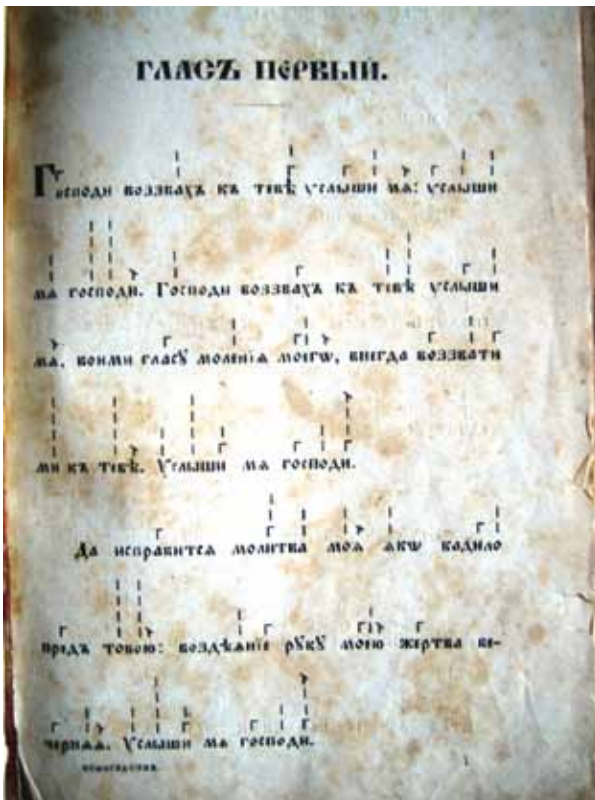 ГЛАСЪ ПЕРВЫЙ.
Господи воззвахъ къ тебѣ услыши мѧ: услыши
мѧ господи. Господи воззвахъ къ тебѣ услыши
мѧ, вонми гласꙋ моленїѧ моегѡ, внегда воззвати
ми къ тебѣ. Услыши мѧ господи.
Да исправитсѧ молитва моѧ ꙗкѡ кадило
предъ тобою: воздѣѧнїе рꙋкꙋ моею жертва ве-
чернѧѧ. Услыши мѧ господи.
1